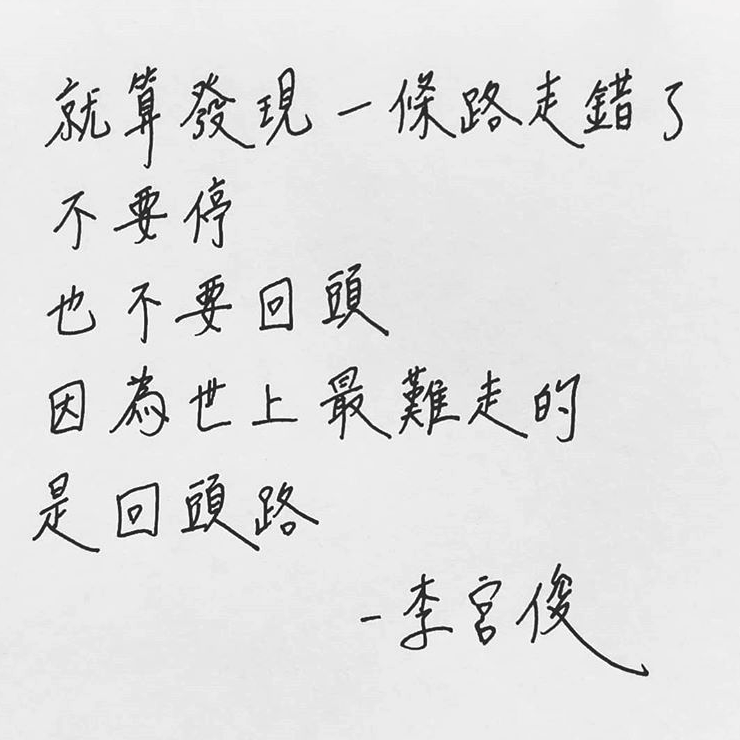 就算發現一條路走錯了
不要停
也不要回頭
因為世上最難走的
是回頭路
-李宮俊